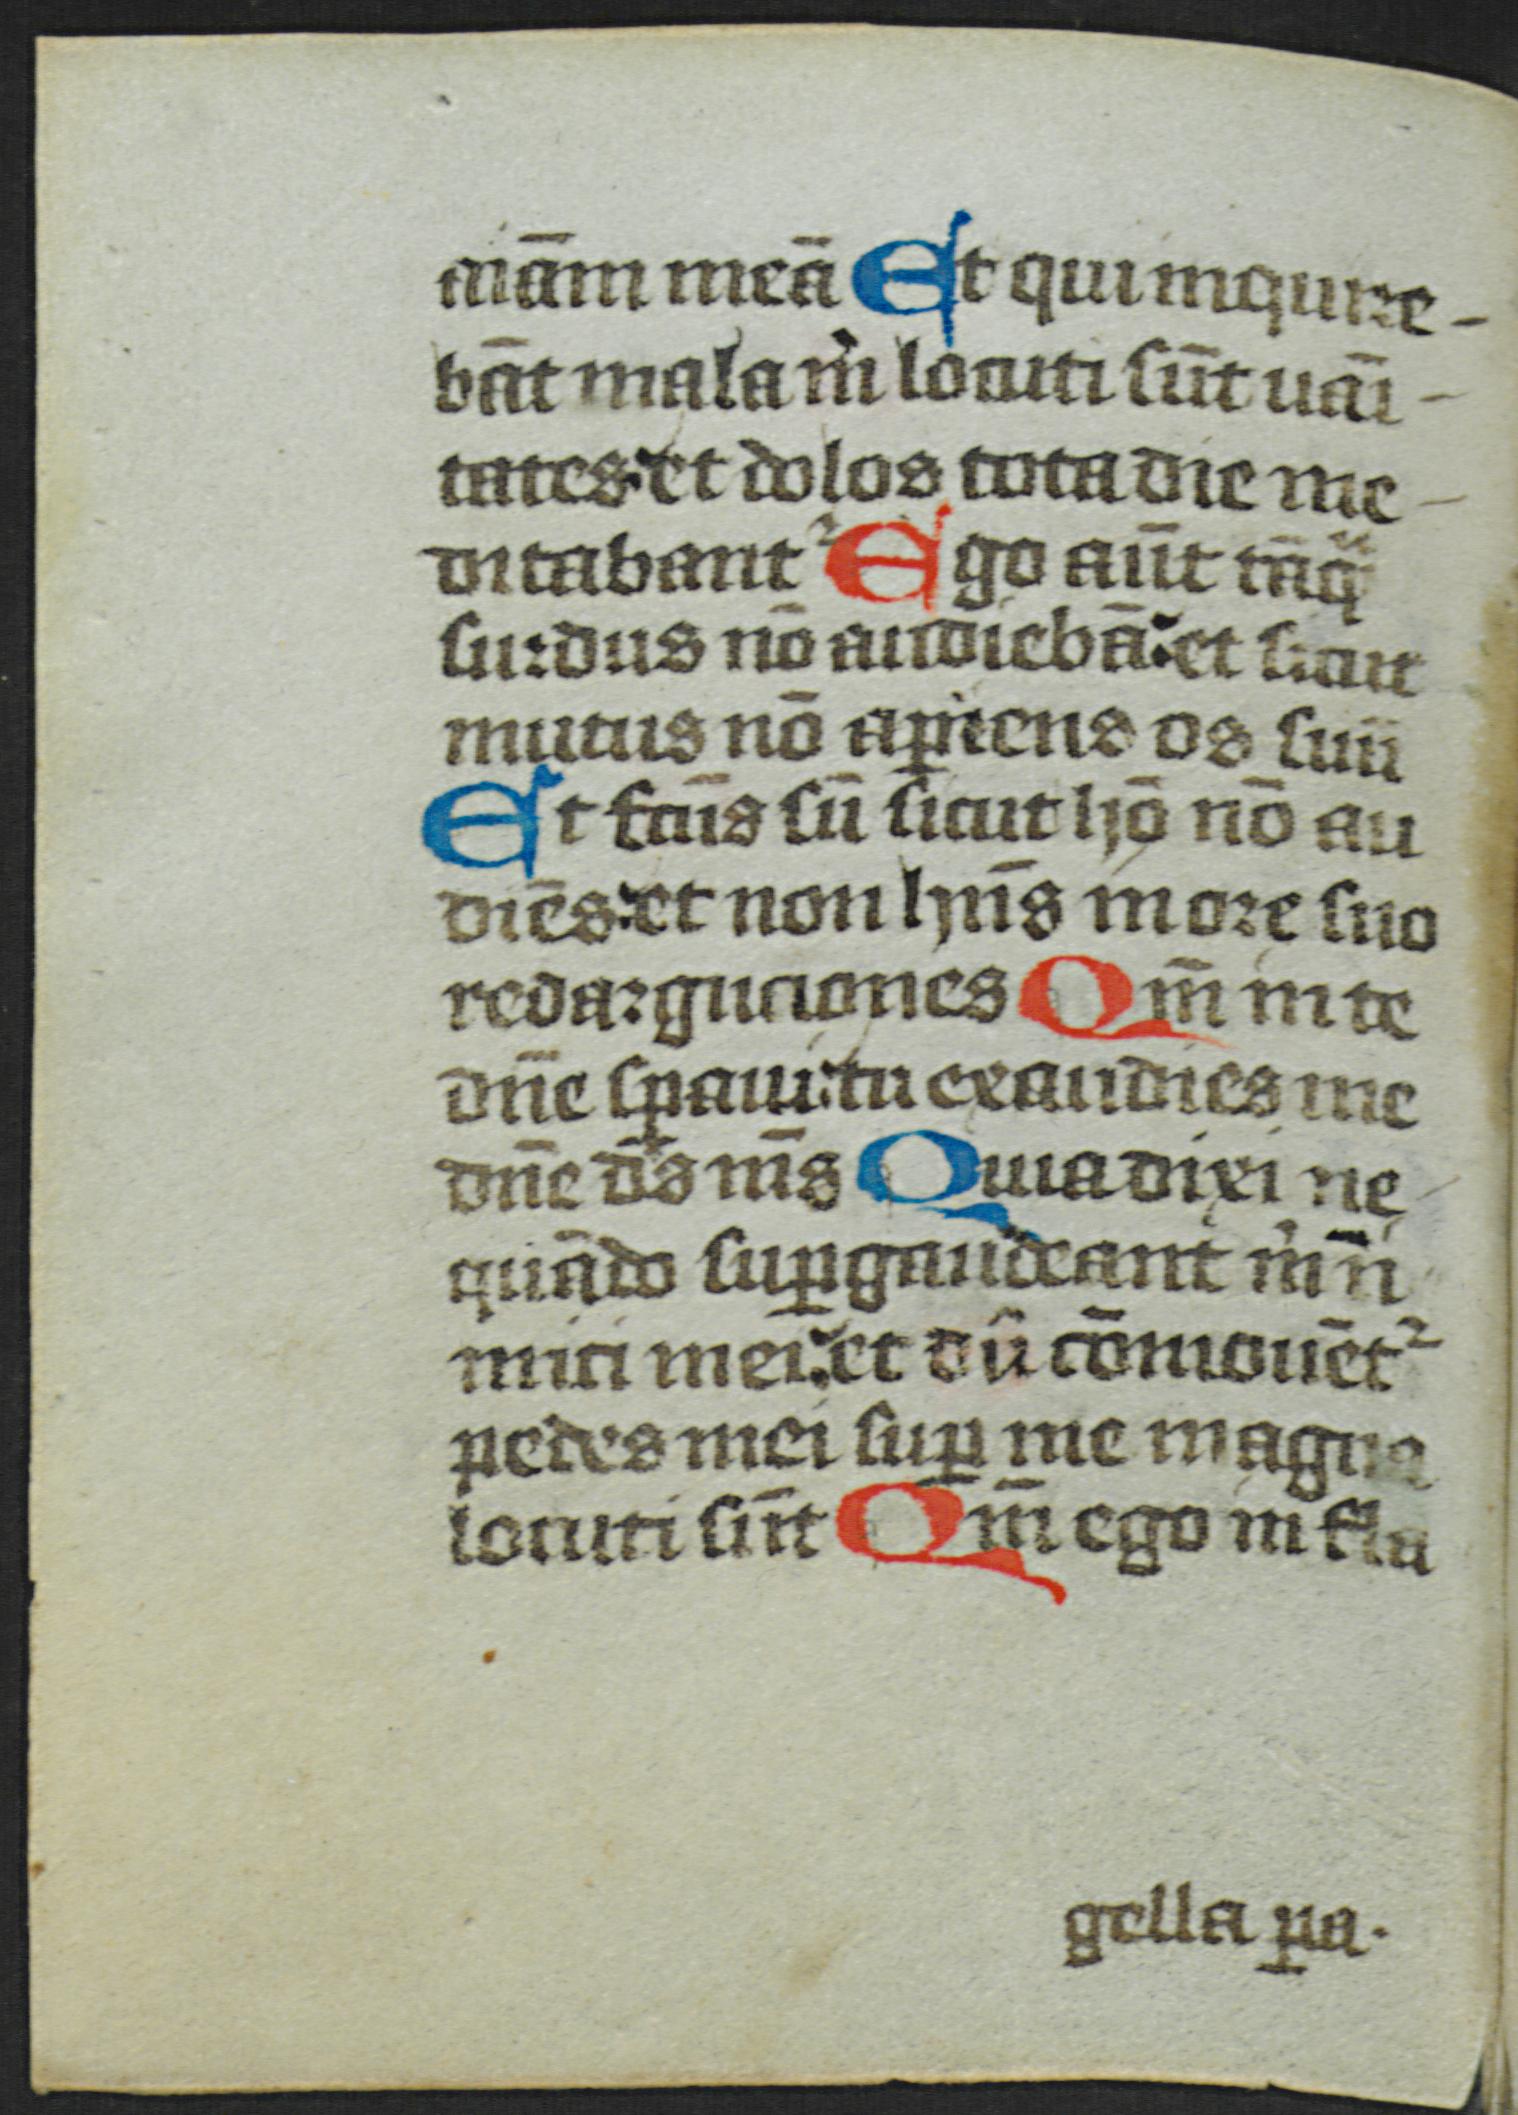 aīam meā Et qui inquire-
bāt mala m̍ locuti sūt uāi-
tates: et dolos tota die me-
ditabant² Ego aūt tāqͣ
surdus nō audiebā: et sicut
mutus nō ap̱iens os suū
Et fc̄us sū sicut hō nō au
diēs: et non hn̄s in ore suo
redarguciones Qm̄ in te
dn̄e sp̱aui: tu exaudies me
dn̄e ds̄ ms̄ Quia dixi ne
quādo sup̱gaudeant m̍ in̄
mici mei: et dū cōmouēt²
pedes mei sup̱ me magna
locuti sūt Qm̄ ego in fla
gella p̱a.